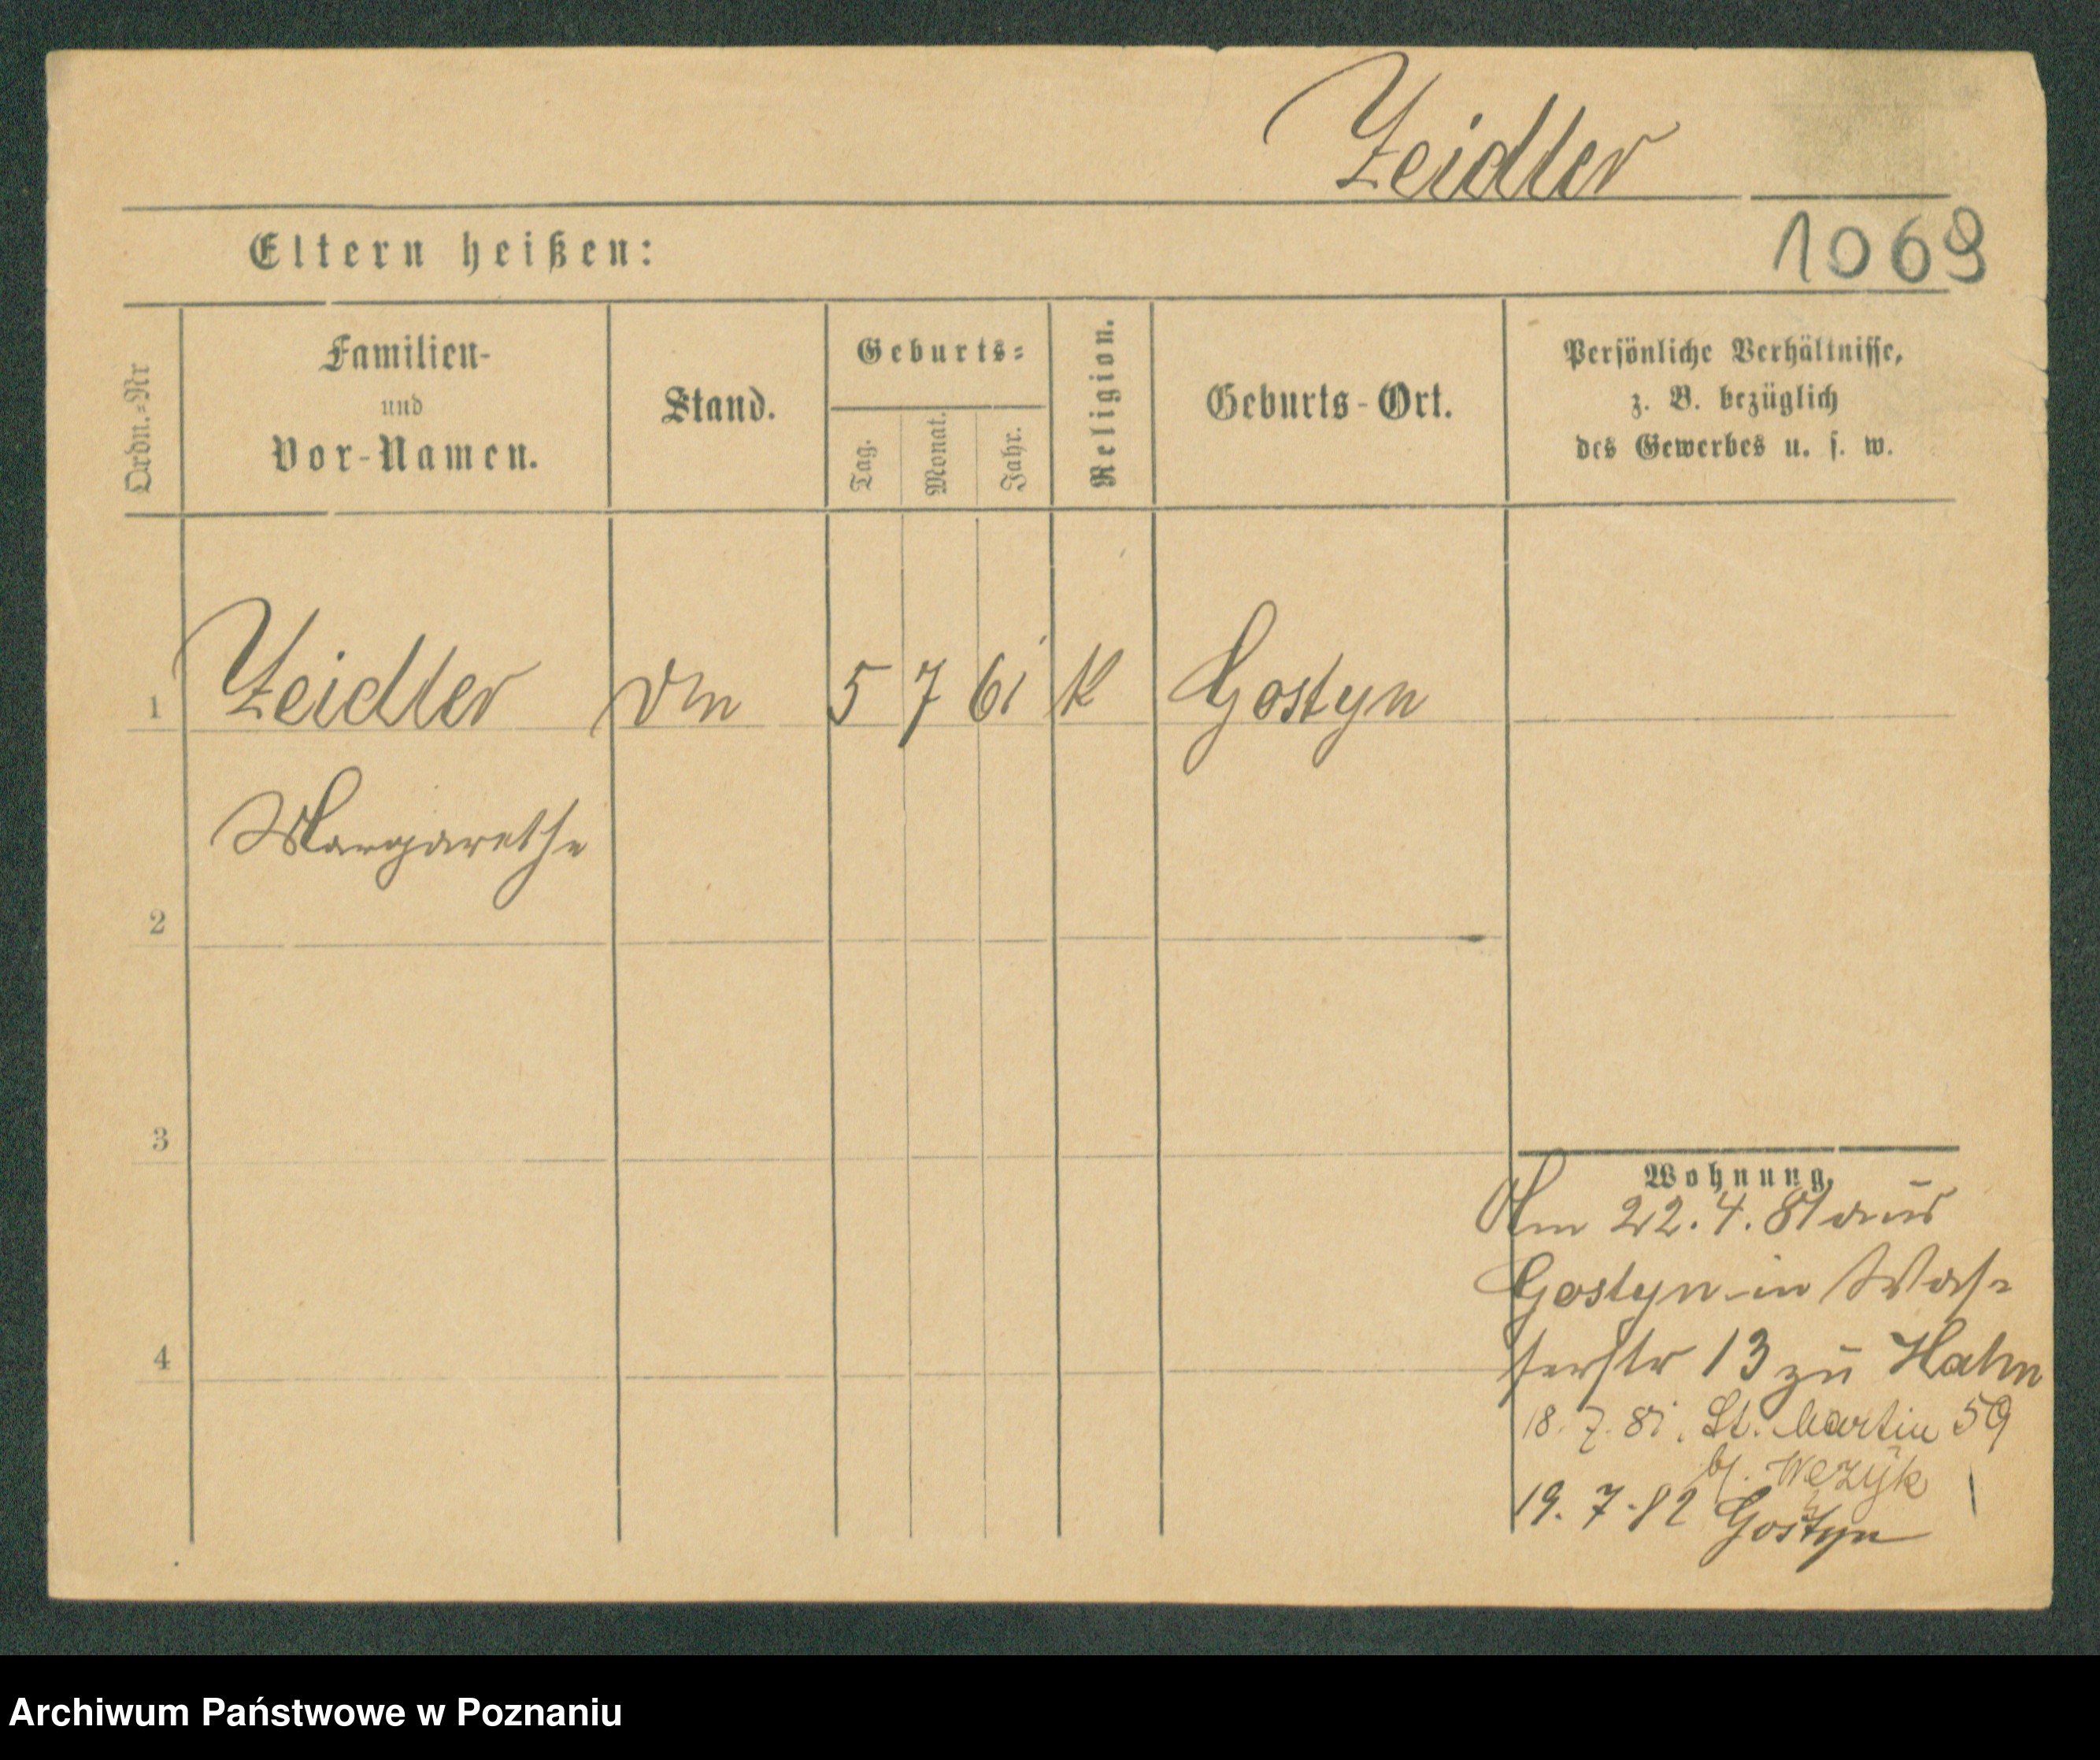 Zeidler
1069
Eltern heißen:
Ordn.=Nr
Familien-
und
Vor-Namen.
Stand.
Geburts=
Tag.
Monat.
Jahr.
Religion.
Geburts-Ort.
Persönliche Verhältnisse,
z. B. bezüglich
des Gewerbes u. s. w.
1 Zeidler 5 7 61 K Gostyn
Margarethe
2
3
4
Wohnung.
Am 22. 4. 81 aus
Gostyn in Was=
serstr 13 zu Hahn
18. 7. 81. St. Martin 59
b/. Wezyk
19. 7. 82 Gostyn
Archiwum Państwowe w Poznaniu